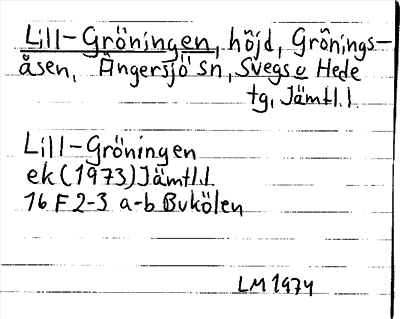 Lill-Gröningen, höjd, Grönings-
åsen, Ängersjö sn, Svegs o Hede
tg, Jämtl.l
Lill-Gröningen
ek (1973) Jämtl.l
16 F 2-3 a-b Bukölen
LM 1974